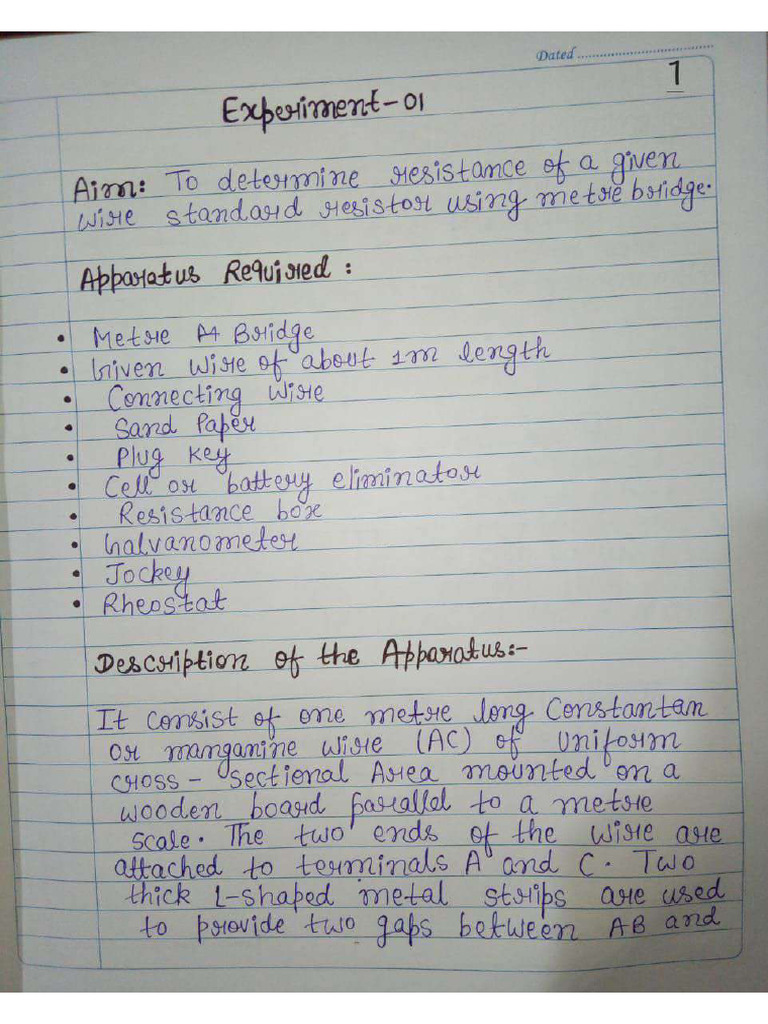 Dated
1
Experiment-01
Aim: To determine resistance of a given
wire standard resistor using metre bridge.
Apparatus Required:
• Metre Bridge
• Given wire of about 1m length
• Connecting wire
• Sand Paper
• Plug key
• Cell or battery eliminator
• Resistance box
• Galvanometer
• Jockey
• Rheostat
Description of the Apparatus:-
It consist of one metre long Constantan
or manganine wire (AC) of uniform
cross-sectional Area mounted on a
wooden board parallel to a metre
scale. The two ends of the wire are
attached to terminals A and C. Two
thick L-shaped metal strips are used
to provide two gaps between AB and